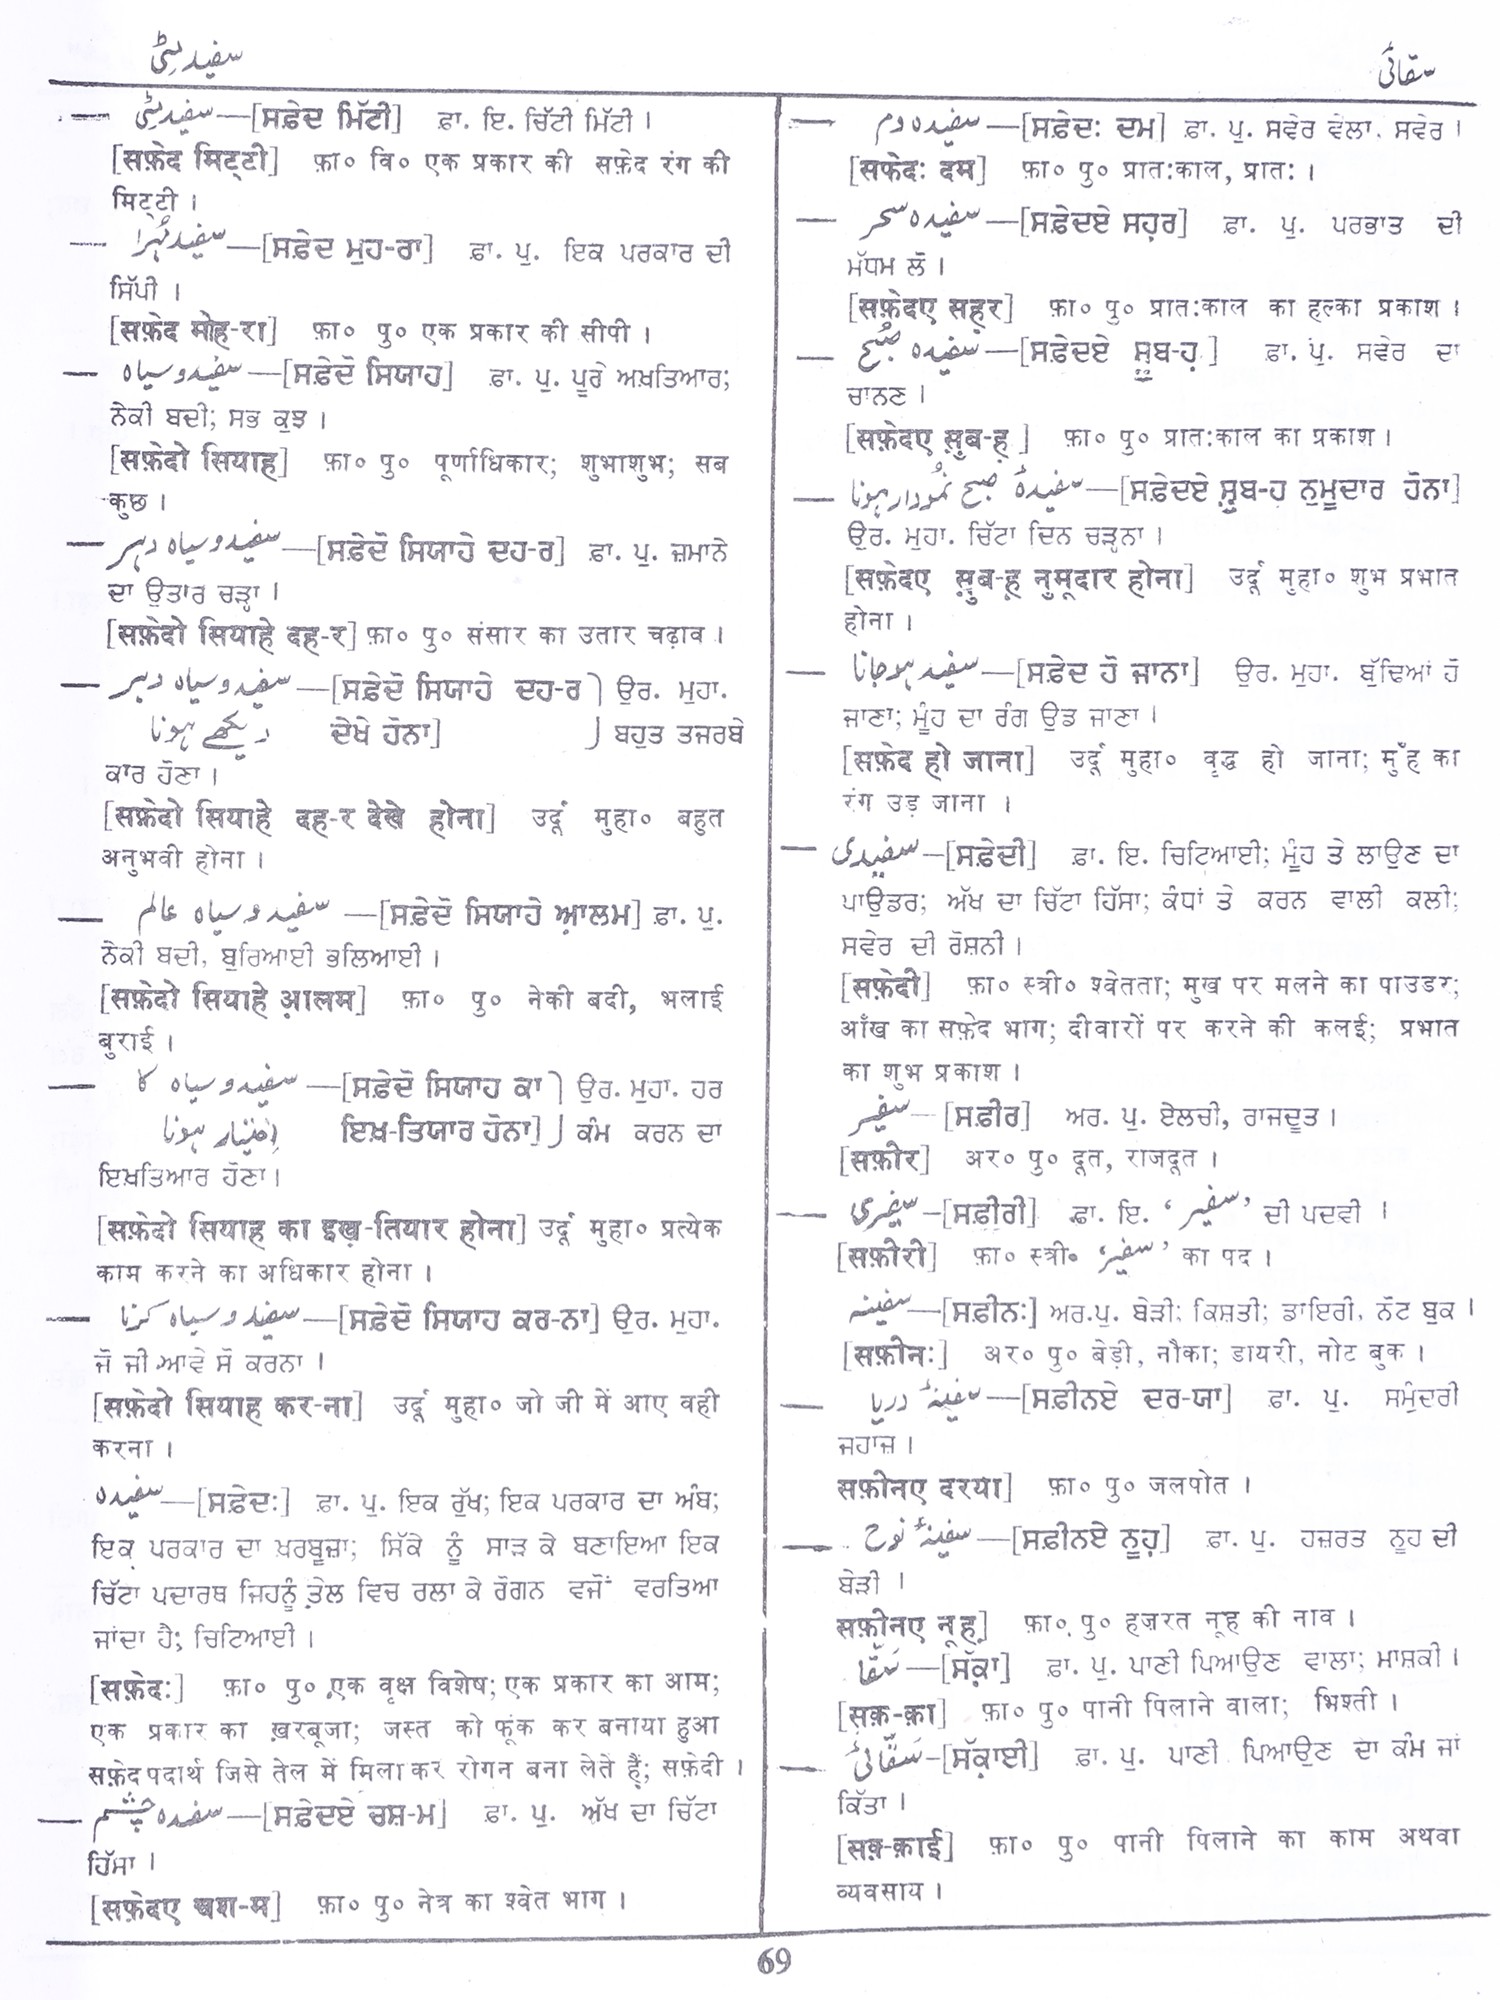 سفید مٹی
سقائی
— سفید مٹی—[ਸਫ਼ੇਦ ਮਿੱਟੀ] ਫ਼ਾ. ਇ. ਚਿੱਟੀ ਮਿੱਟੀ।
[सफ़ेद मिट्टी] फ़ा० वि० एक प्रकार की सफ़ेद रंग की
मिट्टी।
— سفید مُہرا—[ਸਫ਼ੇਦ ਮੁਹ-ਰਾ] ਫ਼ਾ. ਪੁ. ਇਕ ਪਰਕਾਰ ਦੀ
ਸਿੱਪੀ।
[सफ़ेद मोह-रा] फ़ा० पु० एक प्रकार की सीपी।
— سفید و سیاہ—[ਸਫ਼ੇਦੋ ਸਿਯਾਹ] ਫ਼ਾ. ਪੁ. ਪੂਰੇ ਅਖ਼ਤਿਆਰ;
ਨੇਕੀ ਬਦੀ; ਸਭ ਕੁਝ।
[सफ़ेदो सियाह] फ़ा० पु० पूर्णाधिकार; शुभाशुभ; सब
कुछ।
— سفید و سیاہ دہر—[ਸਫ਼ੇਦੋ ਸਿਯਾਹੇ ਦਹ-ਰ] ਫ਼ਾ. ਪੁ. ਜ਼ਮਾਨੇ
ਦਾ ਉਤਾਰ ਚੜ੍ਹਾ।
[सफ़ेदो सियाहे दह-र] फ़ा० पु० संसार का उतार चढ़ाव।
— سفید و سیاہ دہر—[ਸਫ਼ੇਦੋ ਸਿਯਾਹੇ ਦਹ-ਰ) ਉਰ. ਮੁਹਾ.
دیکھے ہونا ਦੇਖੇ ਹੋਨਾ] ) ਬਹੁਤ ਤਜਰਬੇ
ਕਾਰ ਹੋਣਾ।
[सफ़ेदो सियाहे दह-र देखे होना] उर्दू मुहा० बहुत
अनुभवी होना।
— سفید و سیاہ عالم—[ਸਫ਼ੇਦੋ ਸਿਯਾਹੇ ਆ਼ਲਮ] ਫ਼ਾ. ਪੁ.
ਨੇਕੀ ਬਦੀ, ਬੁਰਿਆਈ ਭਲਿਆਈ।
[सफ़ेदो सियाहे आ़लम] फ़ा० पु० नेकी बदी, भलाई
बुराई।
— سفید و سیاہ کا—[ਸਫ਼ੇਦੋ ਸਿਯਾਹ ਕਾ) ਉਰ. ਮੁਹਾ. ਹਰ
اِختیار ہونا ਇਖ਼-ਤਿਯਾਰ ਹੋਨਾ]) ਕੰਮ ਕਰਨ ਦਾ
ਇਖ਼ਤਿਆਰ ਹੋਣਾ।
[सफ़ेदो सियाह का इख़-तियार होना] उर्दू मुहा० प्रत्येक
काम करने का अधिकार होना।
— سفید و سیاہ کرنا—[ਸਫ਼ੇਦੋ ਸਿਯਾਹ ਕਰ-ਨਾ] ਉਰ. ਮੁਹਾ.
ਜੋ ਜੀ ਆਵੇ ਸੋ ਕਰਨਾ।
[सफ़ेदो सियाह कर-ना] उर्दू मुहा० जो जी में आए वही
करना।
سفیدہ—[ਸਫ਼ੇਦਃ] ਫ਼ਾ. ਪੁ. ਇਕ ਰੁੱਖ; ਇਕ ਪਰਕਾਰ ਦਾ ਅੰਬ;
ਇਕ ਪਰਕਾਰ ਦਾ ਖ਼ਰਬੂਜ਼ਾ; ਸਿੱਕੇ ਨੂੰ ਸਾੜ ਕੇ ਬਣਾਇਆ ਇਕ
ਚਿੱਟਾ ਪਦਾਰਥ ਜਿਹਨੂੰ ਤੇਲ ਵਿਚ ਰਲਾ ਕੇ ਰੋਗਨ ਵਜੋਂ ਵਰਤਿਆ
ਜਾਂਦਾ ਹੈ; ਚਿਟਿਆਈ।
[सफ़ेदः] फ़ा० पु० एक वृक्ष विशेष; एक प्रकार का आम;
एक प्रकार का ख़रबूजा; जस्त को फूंक कर बनाया हुआ
सफ़ेद पदार्थ जिसे तेल में मिला कर रोगन बना लेते हैं; सफ़ेदी।
— سفیدہ چشم—[ਸਫ਼ੇਦਏ ਚਸ਼-ਮ] ਫ਼ਾ. ਪੁ. ਅੱਖ ਦਾ ਚਿੱਟਾ
ਹਿੱਸਾ।
[सफ़ेदए चश-म] फ़ा० पु० नेत्र का श्वेत भाग।
— سفیدہ دم—[ਸਫ਼ੇਦਃ ਦਮ] ਫ਼ਾ. ਪੁ. ਸਵੇਰ ਵੇਲਾ, ਸਵੇਰ।
[सफेदः दम] फ़ा० पु० प्रातःकाल, प्रातः।
— سفیدہ سحر—[ਸਫ਼ੇਦਏ ਸਹ਼ਰ] ਫ਼ਾ. ਪੁ. ਪਰਭਾਤ ਦੀ
ਮੱਧਮ ਲੋ।
[सफेदए सह़र] फ़ा० पु० प्रातःकाल का हल्का प्रकाश।
— سفیدہ صُبح—[ਸਫ਼ੇਦਏ ਸੁ਼ਬ-ਹ਼] ਫ਼ਾ. ਪੁ. ਸਵੇਰ ਦਾ
ਚਾਨਣ।
[सफ़ेदए सु़ब-ह़] फ़ा० पु० प्रातःकाल का प्रकाश।
— سفیدۂ صبح نمُودار ہونا—[ਸਫ਼ੇਦਏ ਸੁ਼ਬ-ਹ ਨੁਮੂਦਾਰ ਹੋਨਾ]
ਉਰ. ਮੁਹਾ. ਚਿੱਟਾ ਦਿਨ ਚੜ੍ਹਨਾ।
[सफ़ेदए सु़ब-ह़ नुमूदार होना] उर्दू मुहा० शुभ प्रभात
होना।
— سفید ہو جانا—[ਸਫ਼ੇਦ ਹੋ ਜਾਨਾ] ਉਰ. ਮੁਹਾ. ਬੁੱਢਿਆਂ ਹੋ
ਜਾਣਾ; ਮੂੰਹ ਦਾ ਰੰਗ ਉਡ ਜਾਣਾ।
[सफ़ेद हो जाना] उर्दू मुहा० वृद्ध हो जाना; मुँह का
रंग उड़ जाना।
— سفیدی—[ਸਫ਼ੇਦੀ] ਫ਼ਾ. ਇ. ਚਿਟਿਆਈ; ਮੂੰਹ ਤੇ ਲਾਉਣ ਦਾ
ਪਾਉਡਰ; ਅੱਖ ਦਾ ਚਿੱਟਾ ਹਿੱਸਾ; ਕੰਧਾਂ ਤੇ ਕਰਨ ਵਾਲੀ ਕਲੀ;
ਸਵੇਰ ਦੀ ਰੋਸ਼ਨੀ।
[सफ़ेदी] फ़ा० स्त्री० श्वेतता; मुख पर मलने का पाउडर;
आँख का सफ़ेद भाग; दीवारों पर करने की कलई; प्रभात
का शुभ प्रकाश।
سفیر—[ਸਫ਼ੀਰ] ਅਰ. ਪੁ. ਏਲਚੀ, ਰਾਜਦੂਤ।
[सफ़ीर] अर० पु० दूत, राजदूत।
— سفیری—[ਸਫ਼ੀਰੀ] ਫ਼ਾ. ਇ. ‘سفیر’ ਦੀ ਪਦਵੀ।
[सफ़ीरी] फ़ा० स्त्री० ‘سفیر’ का पद।
سفینہ—[ਸਫ਼ੀਨਃ] ਅਰ.ਪੁ. ਬੇੜੀ; ਕਿਸ਼ਤੀ; ਡਾਇਰੀ, ਨੋਟ ਬੁਕ।
[सफ़ीनः] अर० पु० बेड़ी, नौका; डायरी, नोट बुक।
— سفینۂ دریا—[ਸਫ਼ੀਨਏ ਦਰ-ਯਾ] ਫ਼ਾ. ਪੁ. ਸਮੁੰਦਰੀ
ਜਹਾਜ਼।
सफ़ीनए दरया] फ़ा० पु० जलपोत।
— سفینۂ نوح—[ਸਫ਼ੀਨਏ ਨੂਹ਼] ਫ਼ਾ. ਪੁ. ਹਜ਼ਰਤ ਨੂਹ ਦੀ
ਬੇੜੀ।
सफ़ीनए नूह़] फ़ा० पु० हज़रत नूह की नाव।
سَقّا—[ਸੱਕ਼ਾ] ਫ਼ਾ. ਪੁ. ਪਾਣੀ ਪਿਆਉਣ ਵਾਲਾ; ਮਾਸ਼ਕੀ।
[सक़-क़ा] फ़ा० पु० पानी पिलाने वाला; भिश्ती।
— سَقّائی—[ਸੱਕ਼ਾਈ] ਫ਼ਾ. ਪੁ. ਪਾਣੀ ਪਿਆਉਣ ਦਾ ਕੰਮ ਜਾਂ
ਕਿੱਤਾ।
[सक़-क़ाई] फ़ा० पु० पानी पिलाने का काम अथवा
व्यवसाय।
69